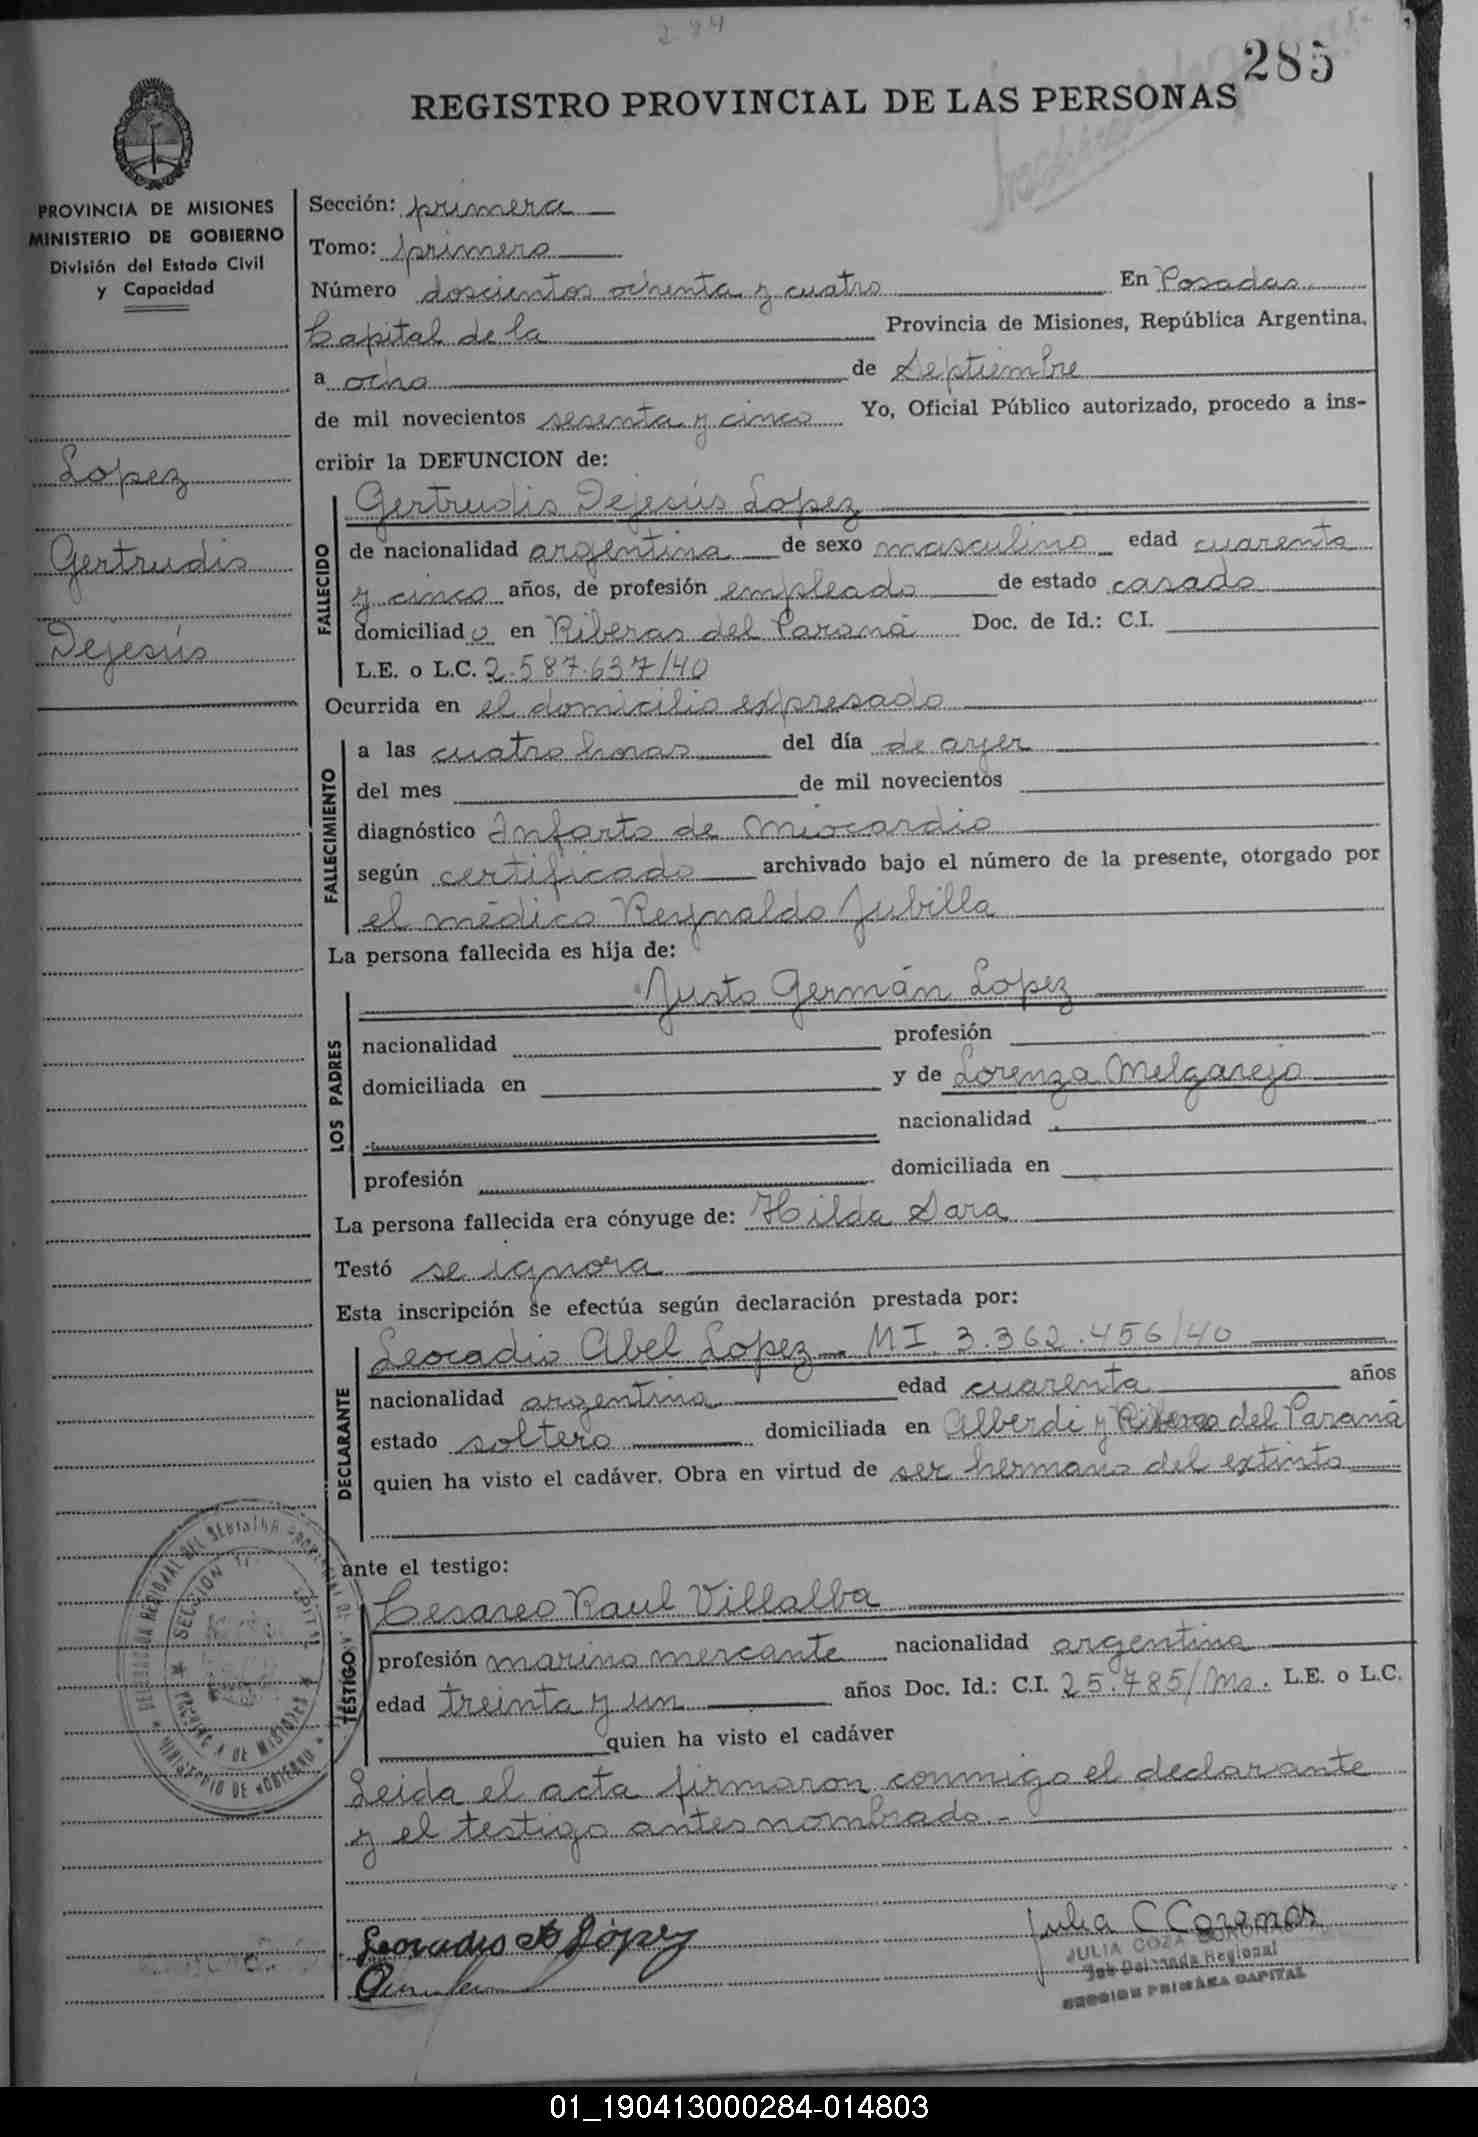 284
285
REGISTRO PROVINCIAL DE LAS PERSONAS
PROVINCIA DE MISIONES
MINISTERIO DE GOBIERNO
División del Estado Civil
y Capacidad
Lopez
Gertrudis
Dejesús
Sección: primera
Tomo: primero
Número doscientos ochenta y cuatro En Posadas
Capital de la Provincia de Misiones, República Argentina,
a ocho de Septiembre
de mil novecientos sesenta y cinco Yo, Oficial Público autorizado, procedo a ins-
cribir la DEFUNCION de:
FALLECIDO
Gertrudis Dejesús Lopez
de nacionalidad argentina de sexo masculino edad cuarenta
y cinco años, de profesión empleado de estado casado
domiciliado en Riberas del Paraná Doc. de Id.: C.I.
L.E. o L.C. 2.587.637/40
Ocurrida en el domicilio expresado
FALLECIMIENTO
a las cuatro horas del día de ayer
del mes de mil novecientos
diagnóstico Infarto de Miocardio
según certificado archivado bajo el número de la presente, otorgado por
el médico Reynaldo Jubilla
La persona fallecida es hija de:
LOS PADRES
Justo Germán Lopez
nacionalidad profesión
domiciliada en y de Lorenza Melgarejo
nacionalidad
profesión domiciliada en
La persona fallecida era cónyuge de: Hilda Sara
Testó se ignora
Esta inscripción se efectúa según declaración prestada por:
DECLARANTE
Leocadio Abel Lopez - MI 3.362.456/40
nacionalidad argentina edad cuarenta años
estado soltero domiciliada en Alberdi y Riberas del Paraná
quien ha visto el cadáver. Obra en virtud de ser hermano del extinto
ante el testigo:
TESTIGO
Cesareo Raul Villalba
profesión marino mercante nacionalidad argentina
edad treinta y un años Doc. Id.: C.I. 25.785/Ms. L.E. o L.C.
quien ha visto el cadáver
Leida el acta firmaron conmigo el declarante
y el testigo antes nombrado.-
SECCION
PROVINCIA DE MISIONES
MINISTERIO DE GOBIERNO
Leocadio A López
Julia C Coronas
JULIA COZA CORONAS
Sub Delegada Regional
SECCION PRIMERA CAPITAL
01_190413000284-014803